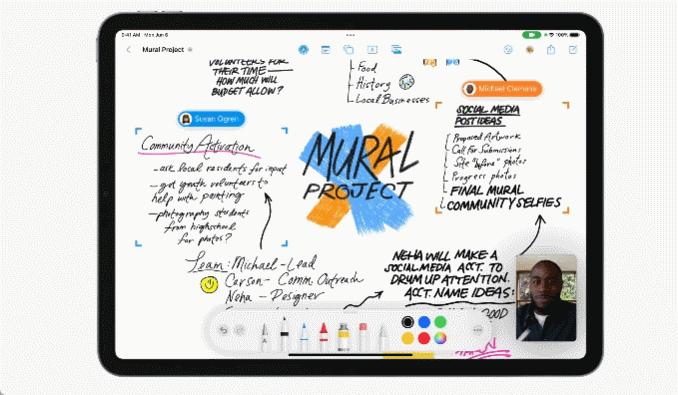 9:41 AM Mon Jun 6
100%
Mural Project
VOLUNTEERS FOR
THEIR TIME—
HOW MUCH WILL
BUDGET ALLOW?
Food
History
Local Businesses
Michael Clemens
Susan Ogren
Community Activation
- ask local residents for input
- get youth volunteers to
help with painting
- photography students
from highschool
for photos?
MURAL
PROJECT
SOCIAL MEDIA
POST IDEAS
Proposed Artwork
Call for Submissions
Site "before" photos
Progress photos
FINAL MURAL
COMMUNITY SELFIES
Team: Michael - Lead
Carson - Comm. Outreach
Neha - Designer
NEHA WILL MAKE A
SOCIAL MEDIA ACCT. TO
DRUM UP ATTENTION.
ACCT. NAME IDEAS: